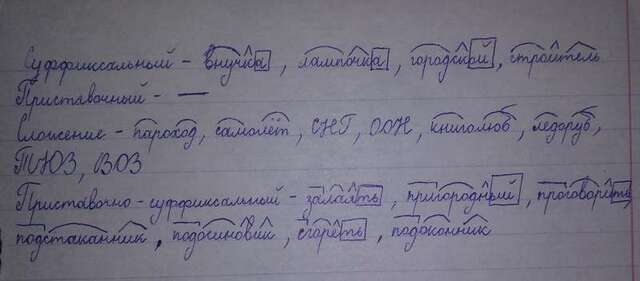 Суффиксальный - внучка, лампочка, городской, строитель
Приставочный - —
Сложение - пароход, самолёт, СНГ, ООН, книголюб, ледоруб,
ТЮЗ, ВОЗ
Приставочно-суффиксальный - залаять, пригородный, проговореть,
подстаканник, подосиновик, сгореть, подоконник